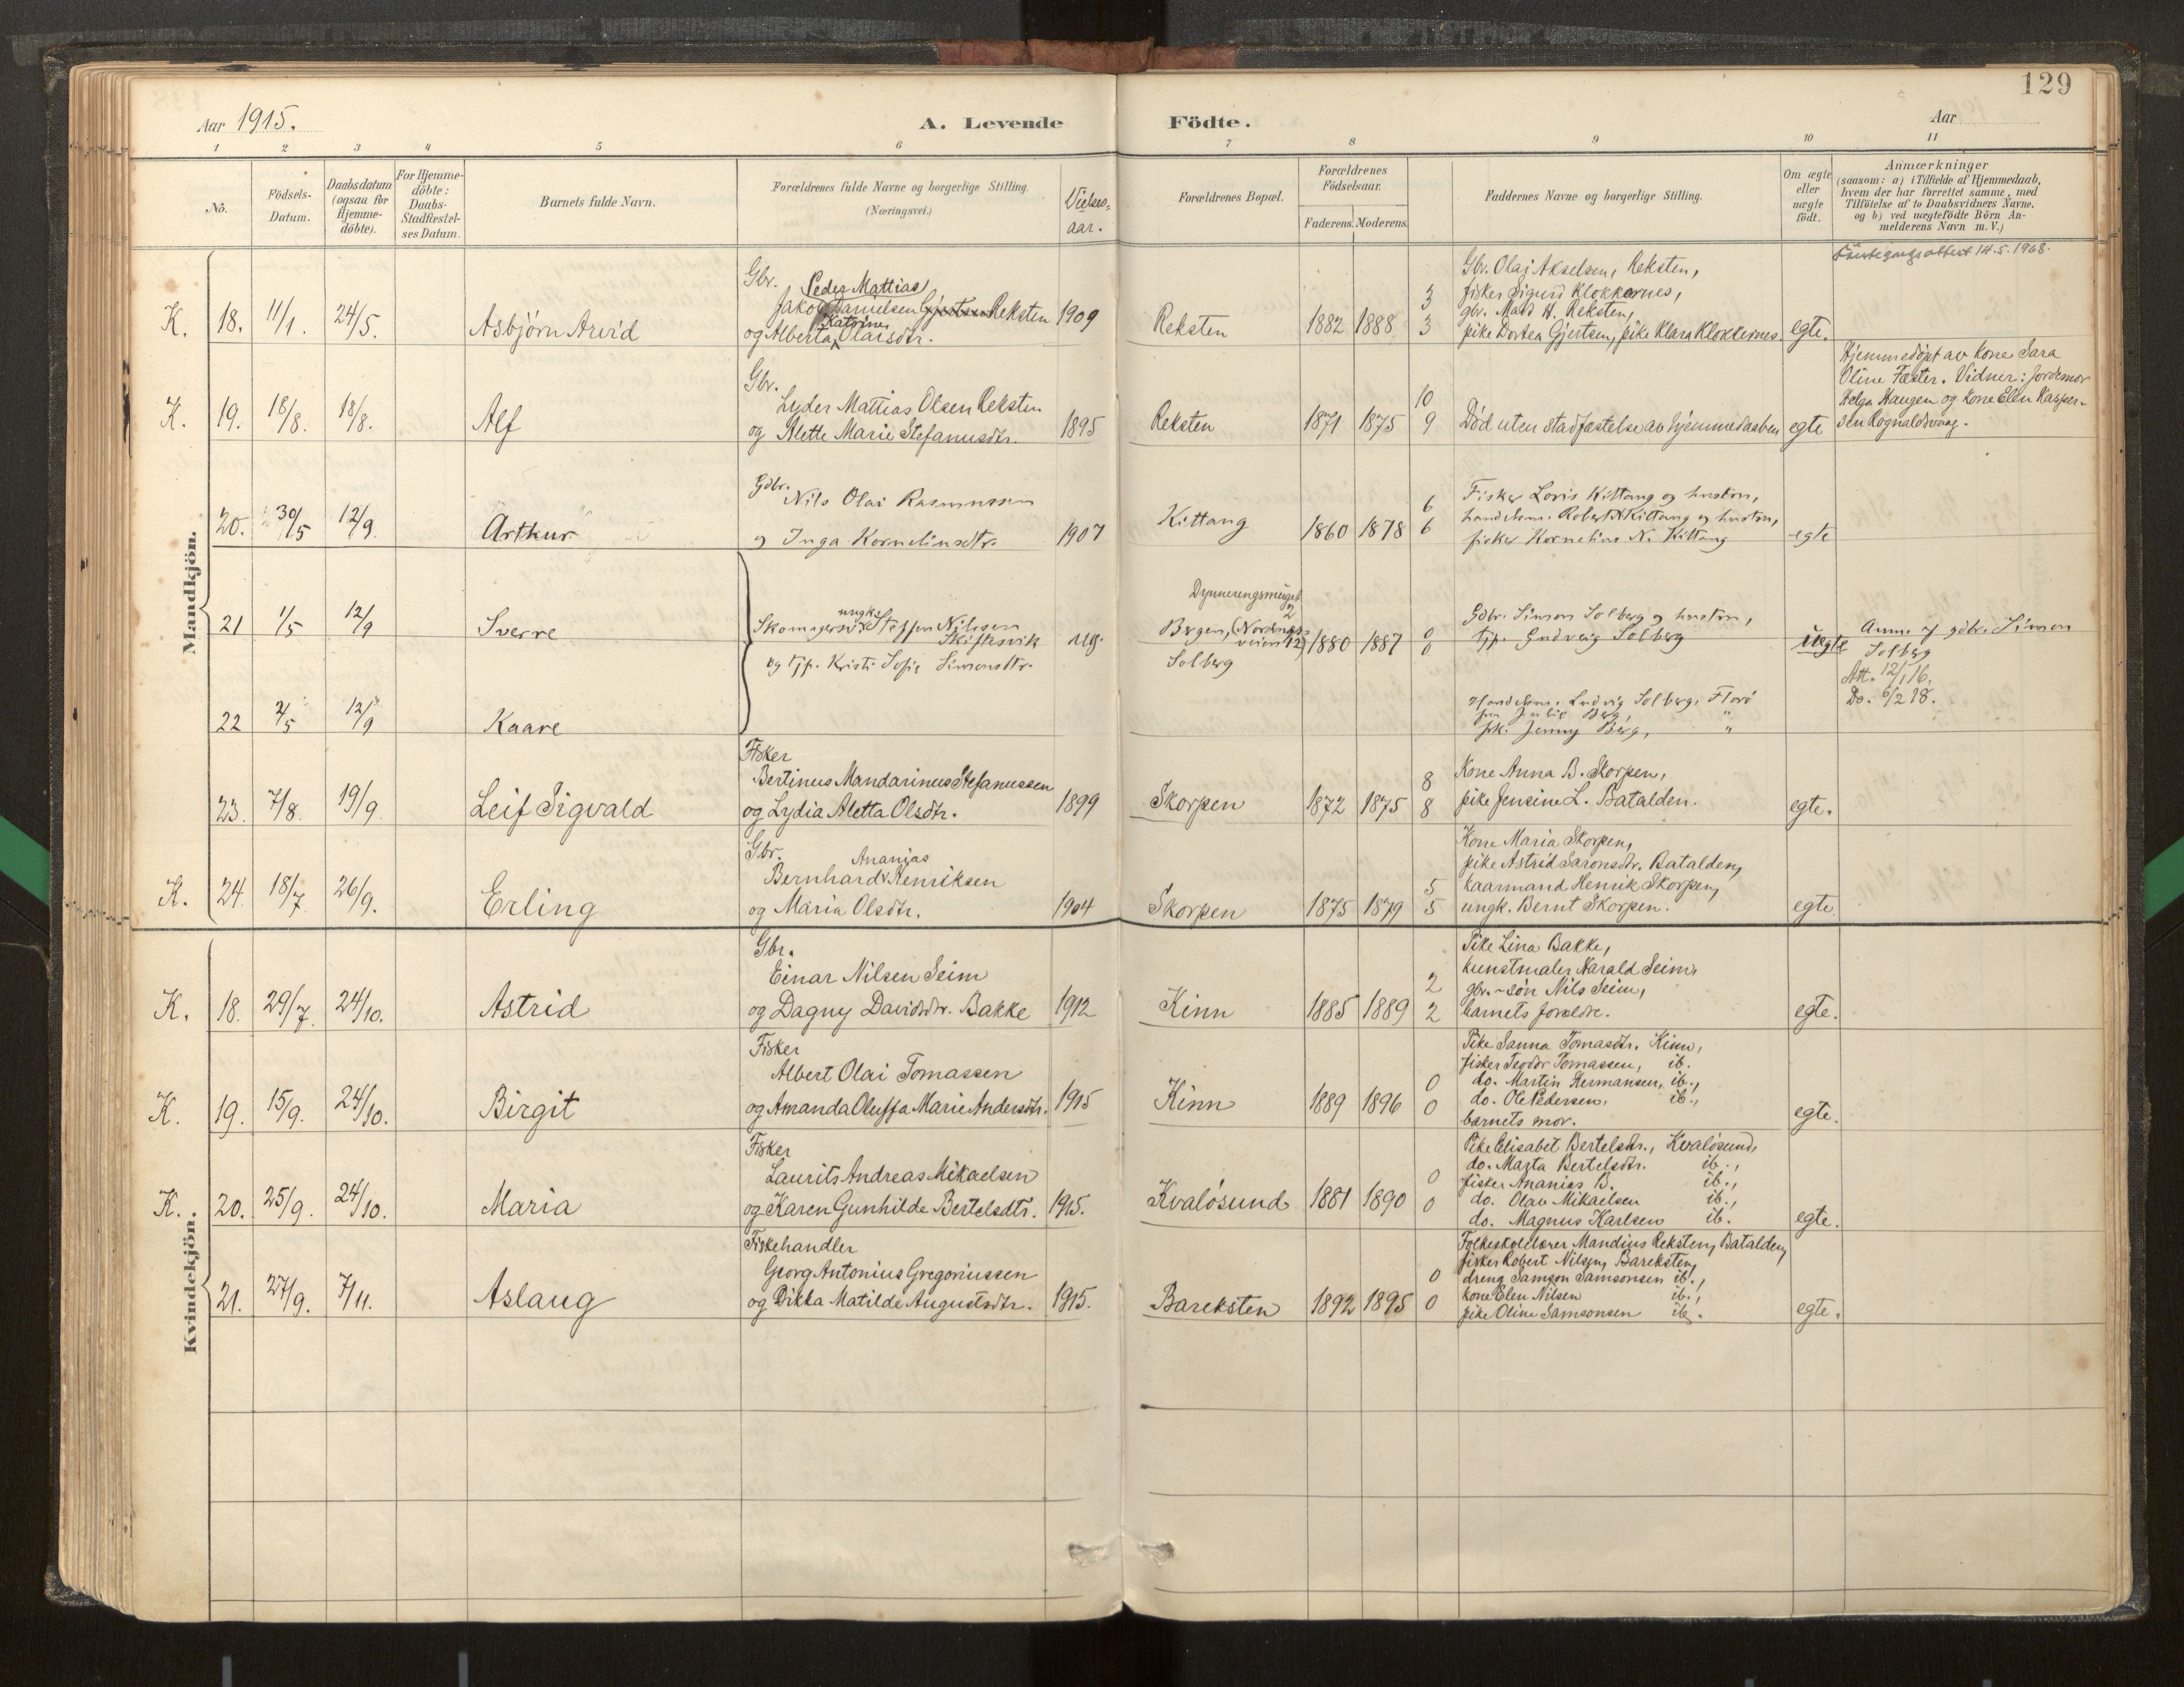 129
Aar 1915.
A. Levende Födte.
Aar
1 2 3 4 5 6 7 8 9 10 11
Nö.
Födsels-
Datum.
Daabsdatum
(ogsaa for
Hjemme-
döbte).
For Hjemme-
döbte:
Daabs-
Stadfæstel-
ses Datum.
Barnets fulde Navn.
Forældrenes fulde Navne og borgerlige Stilling.
(Næringsvei.)
Vielses-
aar.
Forældrenes Bopæl.
Forældrenes
Födselsaar.
Faderens. Moderens.
Faddernes Navne og borgerlige Stilling.
Om ægte
eller
uægte
født.
Anmærkninger
(saasom: a) i Tilfælde af Hjemmedaab,
hvem der har forrettet samme, med
Tilföielse af to Daabsvidners Navne,
og b) ved uægtefödte Börn An-
melderens Navn m. V.)
Mandkjön.
K. 18. 11/1. 24/5. Asbjörn Arvid
Gbr. Peder Mattias
Jakob Danielsen Gjertsen Reksten 1909
Katrine
og Alberta Olaisdtr.
Reksten 1882 1888 3 3
Gbr. Olai Akselsen, Reksten,
fisker Sigurd Klokkernes,
gbr. Mads H. Reksten,
pike Dortea Gjertsen, pike Klara Klokkernes.
egte.
14.5.1968.
K. 19. 18/8. 18/8. Alf
Gbr.
Lyder Mattias Olsen Reksten
og Alette Marie Stefanusdtr. 1895
Reksten 1871 1875 10 9
Död uten stadfæstelse av hjemmedaaben
egte
Hjemmedöpt av Kone Sara
Oline Fester. Vidner: Jordemor
Helga Haugen og kone Elen Kasper-
sen Rognaldsvaag.
20. 30/5 12/9 Arthur
Gdbr.
Nils Olai Rasmussen
og Inga Kornelinsdtr. 1907
Kittang 1860 1878 6 6
Fisker Lovis Kittang og hustru,
handelsm. Robert A Kittang og hustru,
fisker Kornelius N. Kittang
egte
21 1/5 12/9 Sverre
ungk.
Skomagersv. Steffen Nilssen
Skiftesvik ug.
og tjp. Kristi Sofie Simonsdtr.
Bergen, (Nordnes-
veien 12)
Solberg
1880 1887 0 0
Gdbr. Simon Solberg og hustru,
tjp. Gudveig Solberg
uegte
Anm. af gdbr. Simon
Solberg
Att. 12/1 16.
Do. 6/2 18.
22 2/5 12/9 Kaare
Handelsm. Ludvig Solberg, Florö
fru Julie Berg, "
pk. Jenny Berg, "
23. 7/8. 19/9. Leif Sigvald
Fisker
Bertinus Mandarinus Stefanussen
og Lydia Aletta Olsdtr. 1899
Skorpen 1872 1875 8 8
Kone Anna B. Skorpen,
pike Jensine L. Batalden.
egte.
K. 24. 18/7. 26/9. Erling
Gbr. Ananias
Bernhard Henriksen
og Maria Olsdtr. 1904
Skorpen 1875 1879 5 5
Kone Maria Skorpen,
pike Astrid Saronsdtr. Batalden,
kaarmand Henrik Skorpen,
ungk. Bernt Skorpen.
egte
Kvindekjön.
K. 18. 29/7. 24/10. Astrid
Gbr.
Einar Nilsen Seim
og Dagny Davidsdtr. Bakke 1912
Kinn 1885 1889 2 2
Pike Lina Bakke,
kunstmaler Harald Seim,
gbr.-sön Nils Seim,
barnets forældre.
egte.
K. 19. 15/9. 24/10. Birgit
Fisker
Albert Olai Tomassen
og Amanda Oluffa Marie Andersdtr. 1915
Kinn 1889 1896 0 0
Pike Sanna Tomasdtr. Kinn,
fisker Teodor Tomassen, ib.
do. Martin Hermansen, ib.,
do. Ole Pedersen, ib.,
barnets mor.
egte.
K. 20. 25/9. 24/10. Maria
Fisker
Laurits Andreas Mikaelsen
og Karen Gunhilde Bertelsdtr. 1915.
Kvalösund 1881 1890 0 0
Pike Elisabet Bertelsdtr., Kvalösund,
do. Marta Bertelsdtr. ib.,
fisker Ananias B. ib.,
do. Olav Mikaelsen ib.,
do. Magnus Karlsen ib.
egte.
21. 27/9. 7/11. Aslaug
Fiskehandler
Georg Antonius Gregoriussen
og Dikka Matilde Augustsdtr. 1915.
Bareksten 1892 1895 0 0
Folkeskolelærer Mandius Reksten, Batalden,
fisker Robert Nilsen, Bareksten,
dreng Samson Samsonsen ib.,
kone Elen Nilsen ib.,
pike Oline Samsonsen ib.
egte.